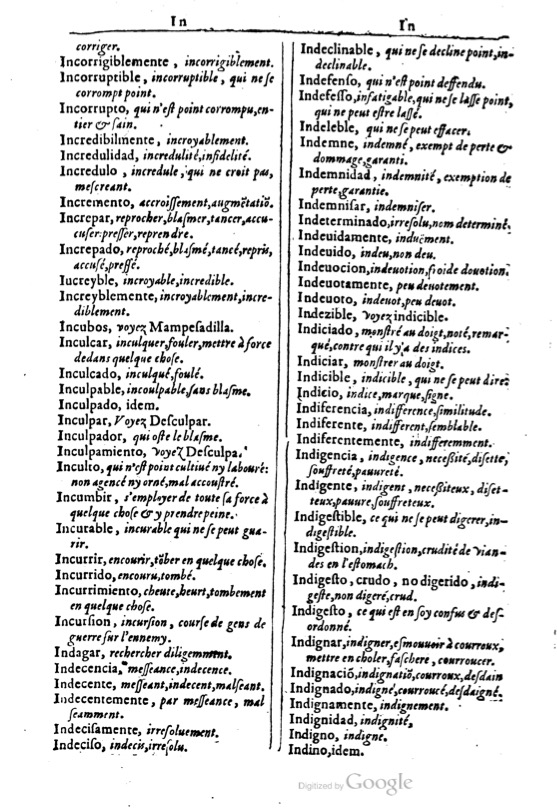 In
corriger.
Incorrigiblemente, incorrigiblement.
Incorruptible, incorruptible, qui ne ſe
corrompt point.
Incorrupto, qui n'eſt point corrompu, en-
tier & ſain.
Incredibilmente, incroyablement.
Incredulidad, incredulité, infidelité.
Incredulo, incredule, qui ne croit pas,
meſcreant.
Incremento, accroiſſement, augmētatiō.
Increpar, reprocher, blaſmer, tancer, accu-
cuſer preſſer, reprendre.
Increpado, reproché, blaſmé, tancé, repris,
accuſé, preſſé.
Iucreyble, incroyable, incredible.
Increyblemente, incroyablement, incre-
diblement.
Incubos, voyez Mampeſadilla.
Inculcar, inculquer, fouler, mettre à force
dedans quelque choſe.
Inculcado, inculqué, foulé.
Inculpable, incoulpable, ſans blaſme.
Inculpado, idem.
Inculpar, Voyez Deſculpar.
Inculpador, qui oſte le blaſme.
Inculpamiento, voyez Deſculpa.
Inculto, qui n'eſt point cultiué ny labouré:
non agencé ny orné, mal accouſtré.
Incumbir, s'employer de toute ſa force à
quelque choſe & y prendre peine.
Incurable, incurable qui ne ſe peut gua-
rir.
Incurrir, encourir, tōber en quelque choſe.
Incurrido, encouru, tombé.
Incurrimiento, cheute, heurt, tombement
en quelque choſe.
Incurſion, incurſion, courſe de gens de
guerre ſur l'ennemy.
Indagar, rechercher diligemment.
Indecencia, meſſeance, indecence.
Indecente, meſſeant, indecent, malſeant.
Indecentemente, par meſſeance, mal
ſeamment.
Indeciſamente, irreſoluement.
Indeciſo, indecis, irreſolu.
In
Indeclinable, qui ne ſe decline point, in-
declinable.
Indefenſo, qui n'eſt point deffendu.
Indefeſſo, infatigable, qui ne ſe laſſe point,
qui ne peut eſtre laſſé.
Indeleble, qui ne ſe peut effacer.
Indemne, indemné, exempt de perte &
dommage, garanti.
Indemnidad, indemnité, exemption de
perte, garantie.
Indemniſar, indemniſer.
Indeterminado, irreſolu, nom determiné.
Indeuidamente, induëment.
Indeuido, indeu, non deu.
Indeuocion, indeuotion, froide deuotion.
Indeuotamente, peu deuotement.
Indeuoto, indeuot, peu deuot.
Indezible, voyez indicible.
Indiciado, monſtré au doigt, noté, remar-
qué, contre qui il y a des indices.
Indiciar, monſtrer au doigt.
Indicible, indicible, qui ne ſe peut dire.
Indicio, indice, marque, ſigne.
Indiferencia, indifference, ſimilitude.
Indiferente, indifferent, ſemblable.
Indiferentemente, indifferemment.
Indigencia, indigence, neceſsité, diſette,
ſouffreté, pauureté.
Indigente, indigent, neceſsiteux, diſet-
teux, pauure, ſouffreteux.
Indigeſtible, ce qui ne ſe peut digerer, in-
digeſtible.
Indigeſtion, indigeſtion, crudité de vian-
des en l'eſtomach.
Indigeſto, crudo, no digerido, indi-
geſte, non digeré, crud.
Indigeſto, ce qui eſt en ſoy confus & deſ-
ordonné.
Indignar, indigner, eſmouuoir à courroux,
mettre en choler, faſchere, courroucer.
Indignació, indignatiō, courroux, deſdain
Indignado, indigné, courroucé, deſdaigné.
Indignamente, indignement.
Indignidad, indignité,
Indigno, indigne.
Indino, idem.
Digitized by Google